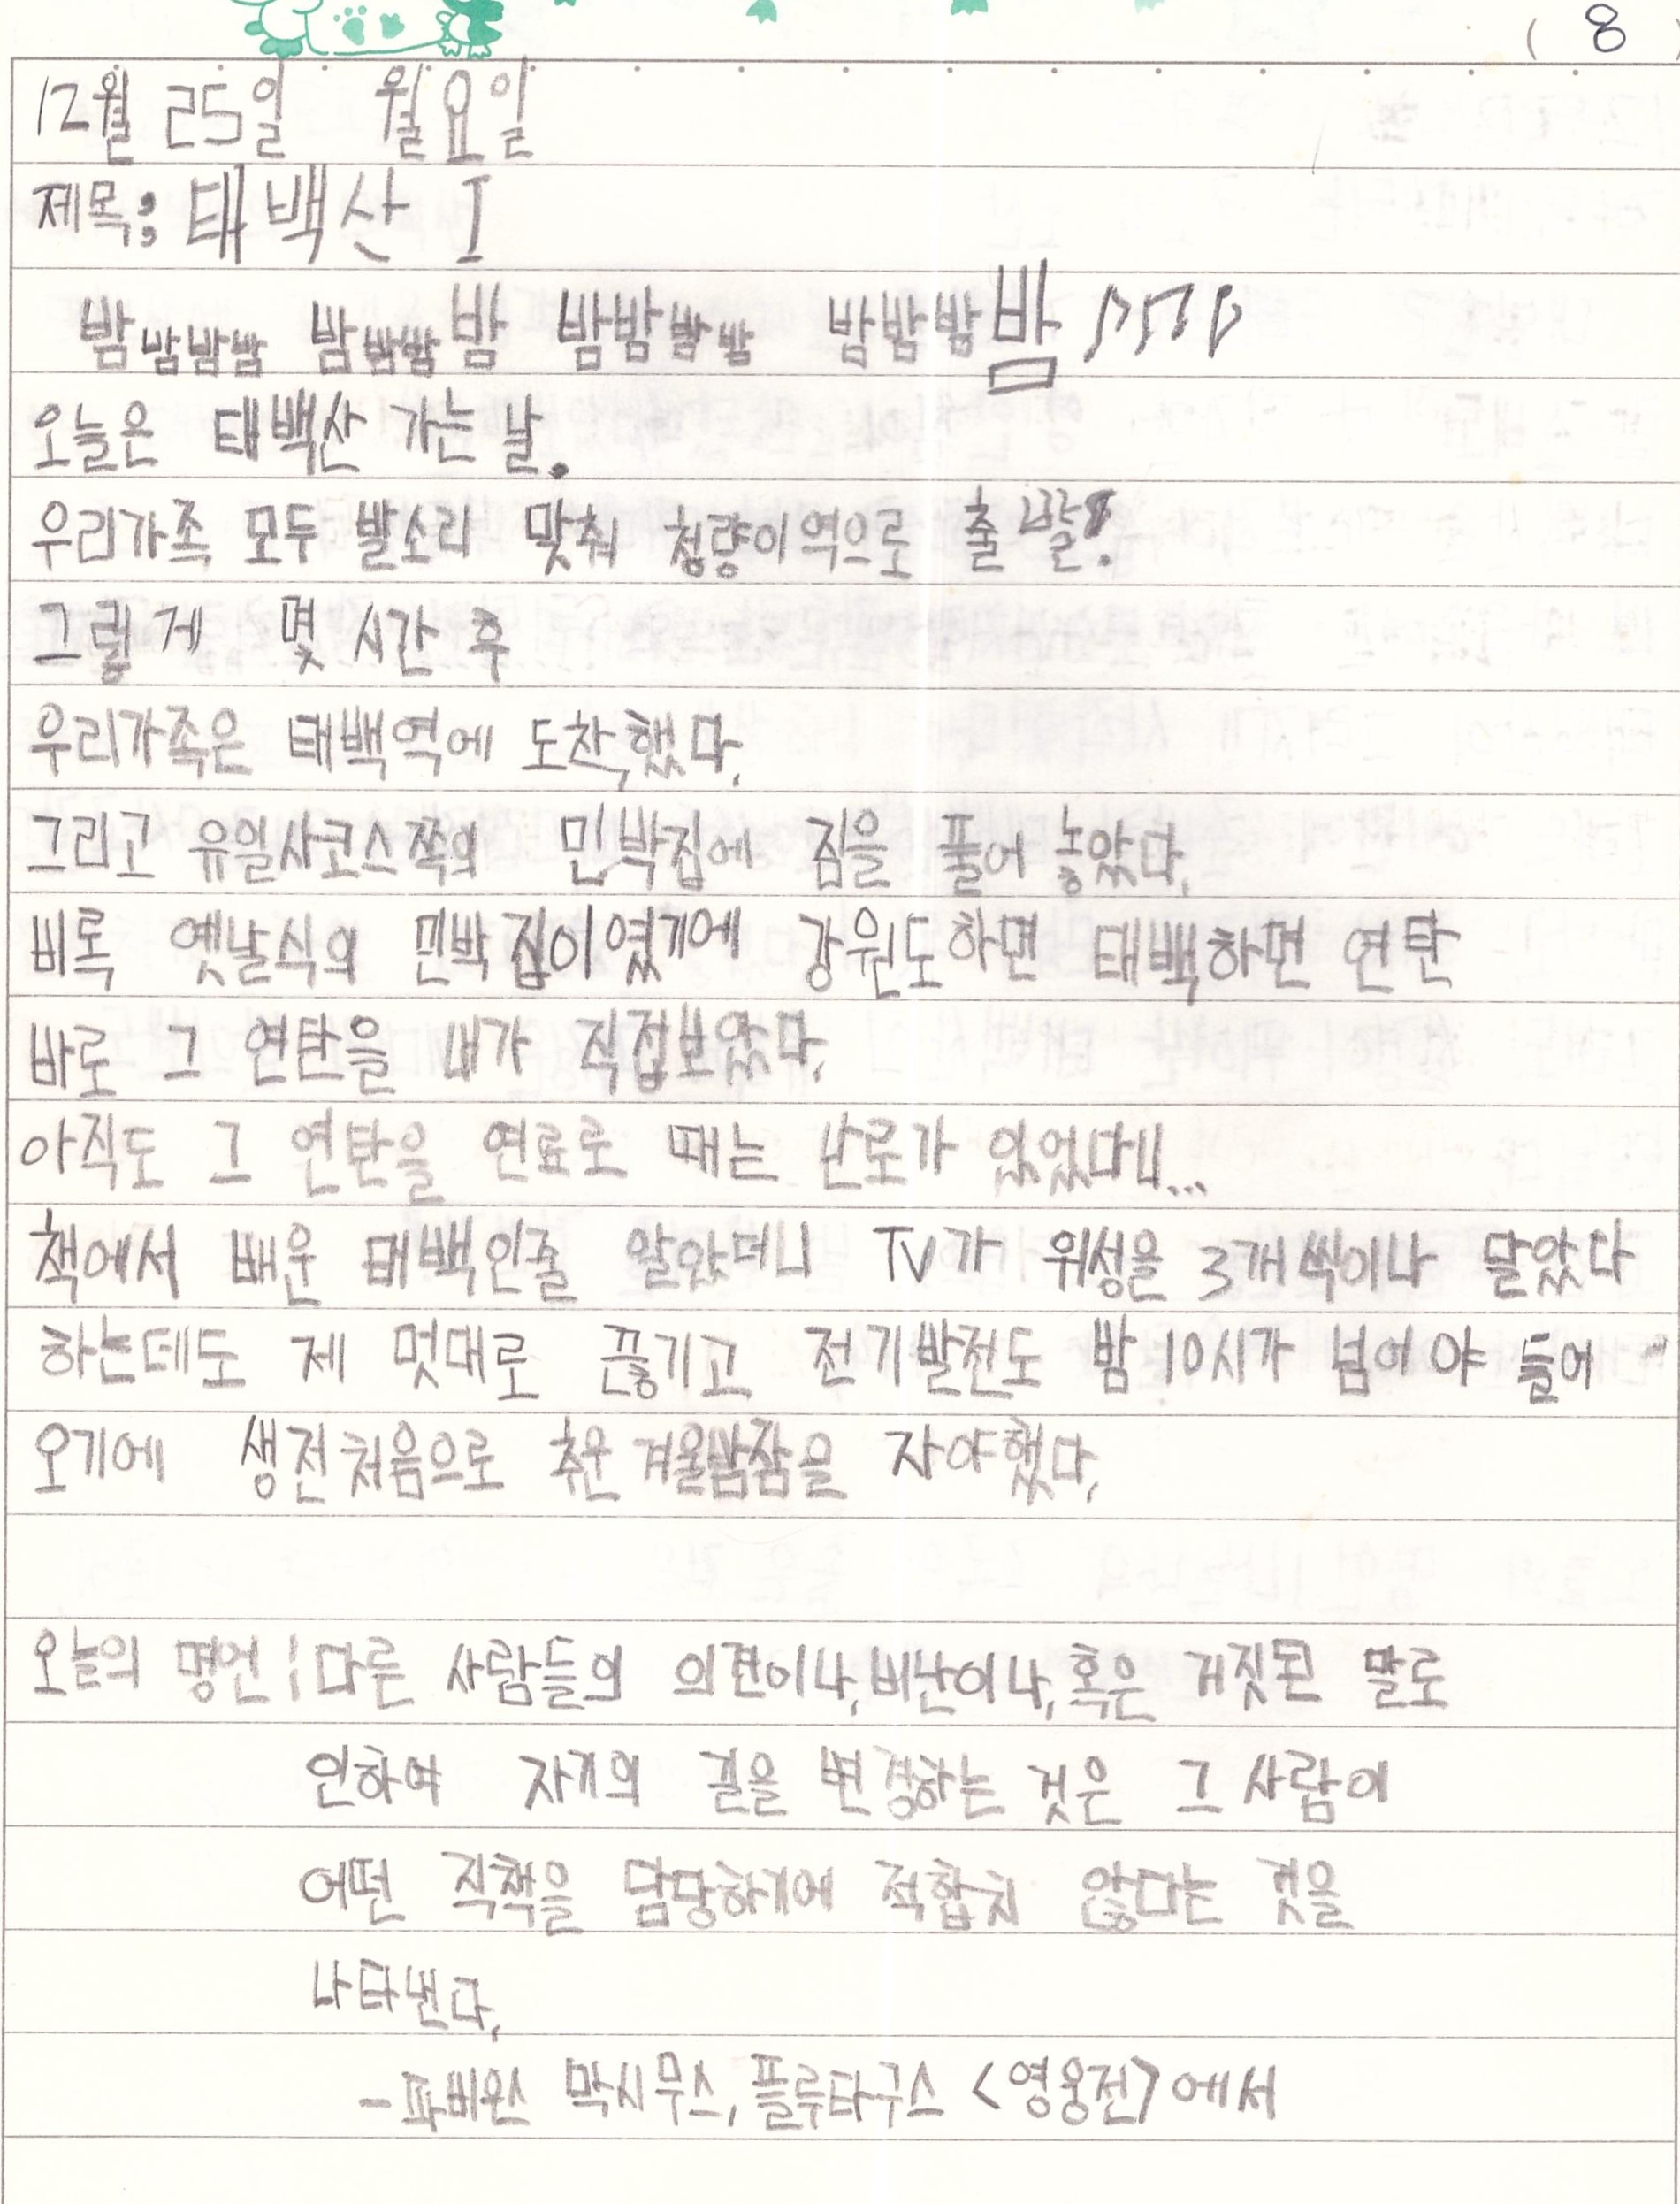 ( 8 )
12월 25일 월요일
제목: 태백산 I
밤밤밤밤 밤밤밤밤밤 밤밤밤밤 밤밤밤밤
오늘은 태백산 가는 날.
우리가족 모두 발소리 맞춰 청량이역으로 출발!
그렇게 몇 시간 후
우리가족은 태백역에 도착했다.
그리고 유일사코스쪽의 민박집에 짐을 풀어 놓았다.
비록 옛날식의 민박집이였기에 강원도하면 태백하면 연탄
바로 그 연탄을 내가 직접보았다.
아직도 그 연탄을 연료로 때는 난로가 있었다니...
책에서 배운 태백인줄 알았더니 TV가 위성을 3개씩이나 달았다
하는데도 제 멋대로 끊기고 전기발전도 밤 10시가 넘어야 들어
오기에 생전처음으로 추운 겨울밤잠을 자야했다.
오늘의 명언 : 다른 사람들의 의견이나, 비난이나, 혹은 거짓된 말로
인하여 자기의 길을 변경하는 것은 그 사람이
어떤 직책을 담당하기에 적합치 않다는 것을
나타낸다.
- 파비우스 막시무스, 플루타구스 <영웅전>에서